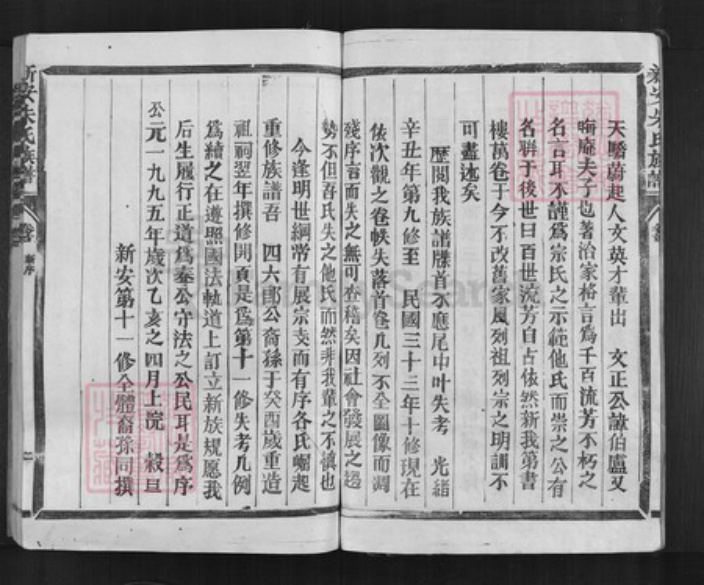 新安朱氏族譜
天曙蔚起人文英才輩出　文正公諱伯廬又
晦庵夫子也著治家格言爲千百流芳不朽之
名言耳不謹爲宗氏之示範他氏而崇之公有
名聯于後世曰百世流芳自占依然新我第書
樓萬卷于今不改舊家風列祖列宗之明訓不
可盡述矣
歷閱我族譜牒首不應尾中叶失考　光緒
辛丑年第九修至　民國三十三年十修現在
依次觀之卷帙失落首卷几列不全圖像而凋
殘序言而失之無可查稽矣因社會發展之趨
勢不但吾氏失之他氏而然非我輩之不慎也
今逢明世綱常有展宗支而有序各氏崛起
重修族譜吾　四六郎公裔孫于癸酉歲重造
祖祠翌年撰修開頁是爲第十一修失考几例
爲續之在遵照國法軌道上訂立新族規愿我
后生履行正道爲奉公守法之公民耳是爲序
公元一九九五年歲次乙亥之四月上浣　穀旦
新安第十一修全體裔孫同撰
新安朱氏族譜
卷首
新序
二